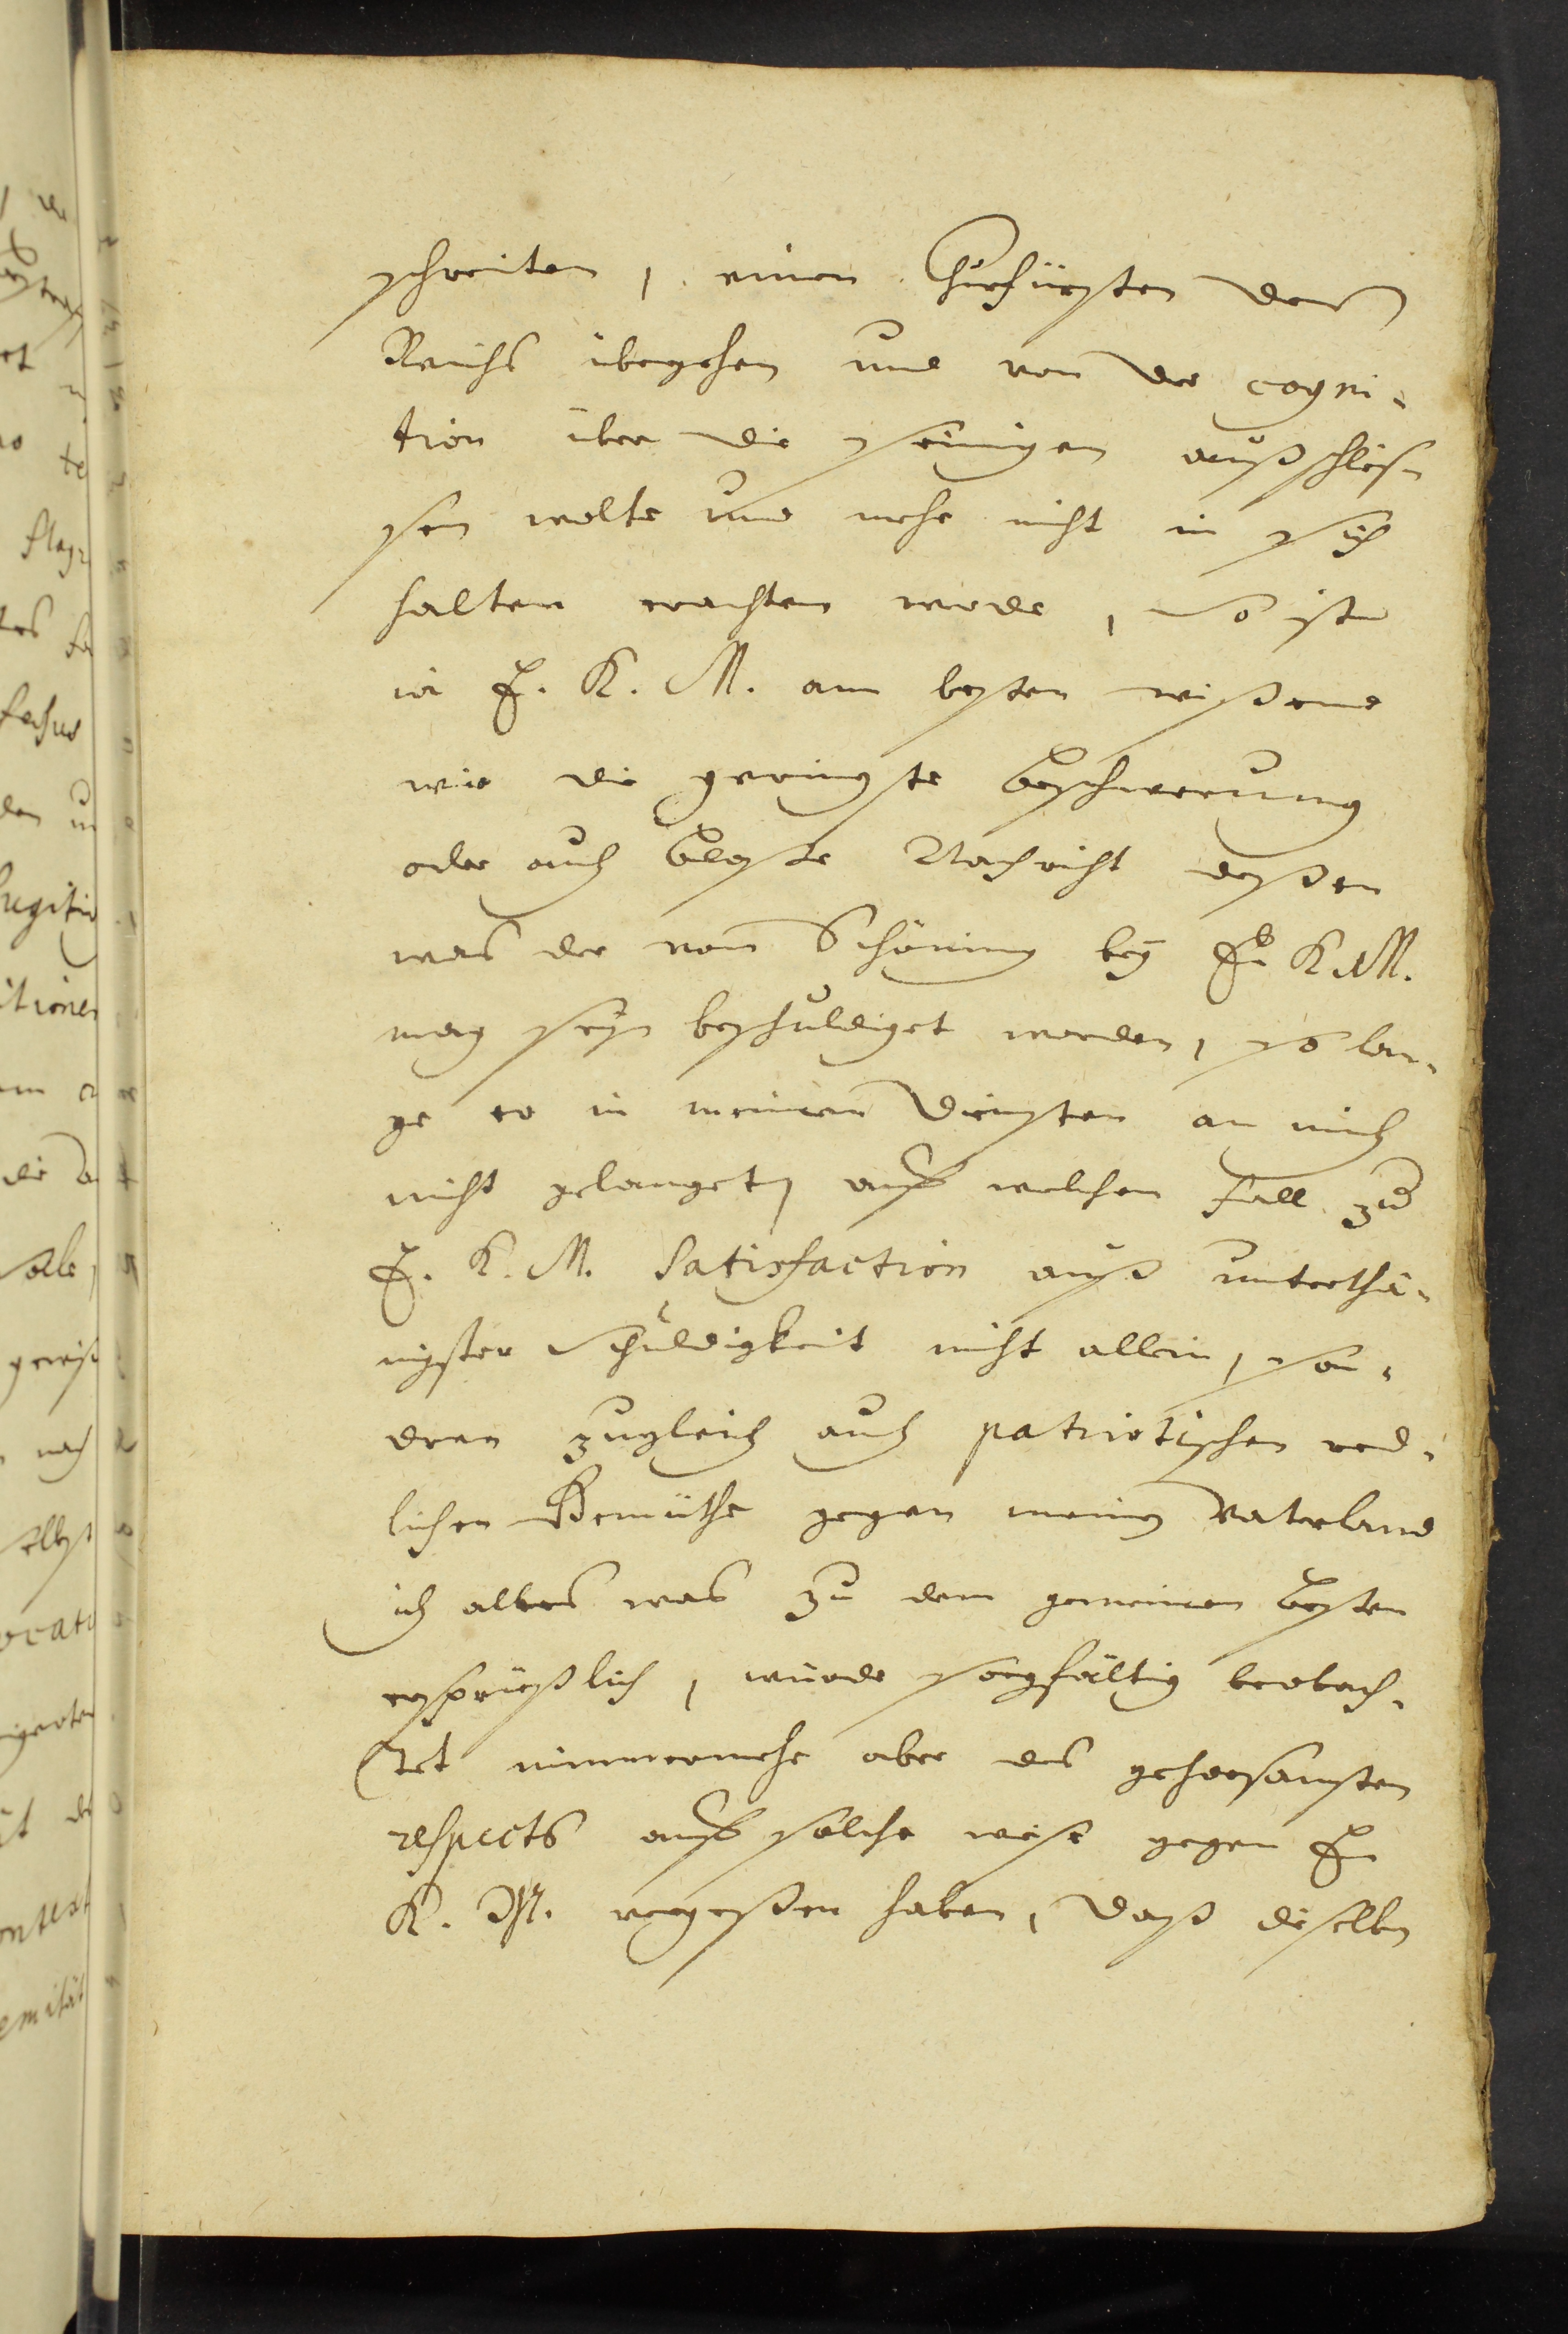 schreiten, einen Churfürsten des
Reichs übergehen und von der cogni-
tion über die seinigen außschlies-
sen wolte und mehr nicht in sich
halten erachten werde, So ist
ja E. K. M. am besten wißend
wie die geringste beschwerung
oder auch bloste Nachricht deßen
was der von Schöning bey E. K. M.
mag seyn beschuldiget worden, so lan-
ge er in meinen diensten an mich
nicht gelanget, auff welchen fall zu
E. K. M. Satisfaction auß unterthä-
nigster Schuldigkeit nicht allein, son-
dern zugleich auch patriotischen red-
lichen Gemüthe gegen mein Vaterland
ich alles was zu dem gemeinen besten
ersprießlich, würde sorgfältig beobach-
tet nimmermehr aber des gehorsamsten
respects auff solche weise gegen E.
K. M. vergeßen haben, daß dieselbe